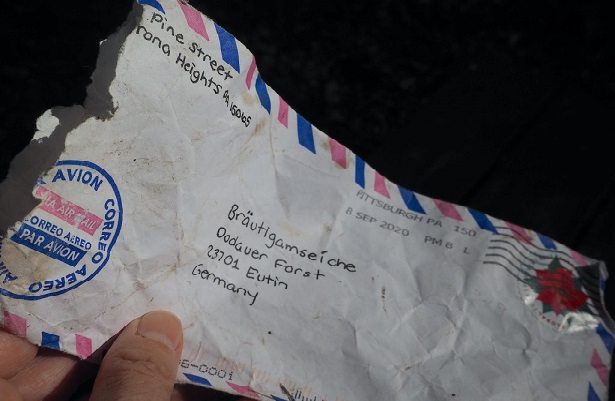 Pine Street
rona Heights PA 15065
PITTSBURGH PA 150
8 SEP 2020 PM 8 L
AVION CORREO AEREO
VIA AIR MAIL
CORREO AEREO
PAR AVION
Bräutigamseiche
Dodauer Forst
23701 Eutin
Germany
6-0001